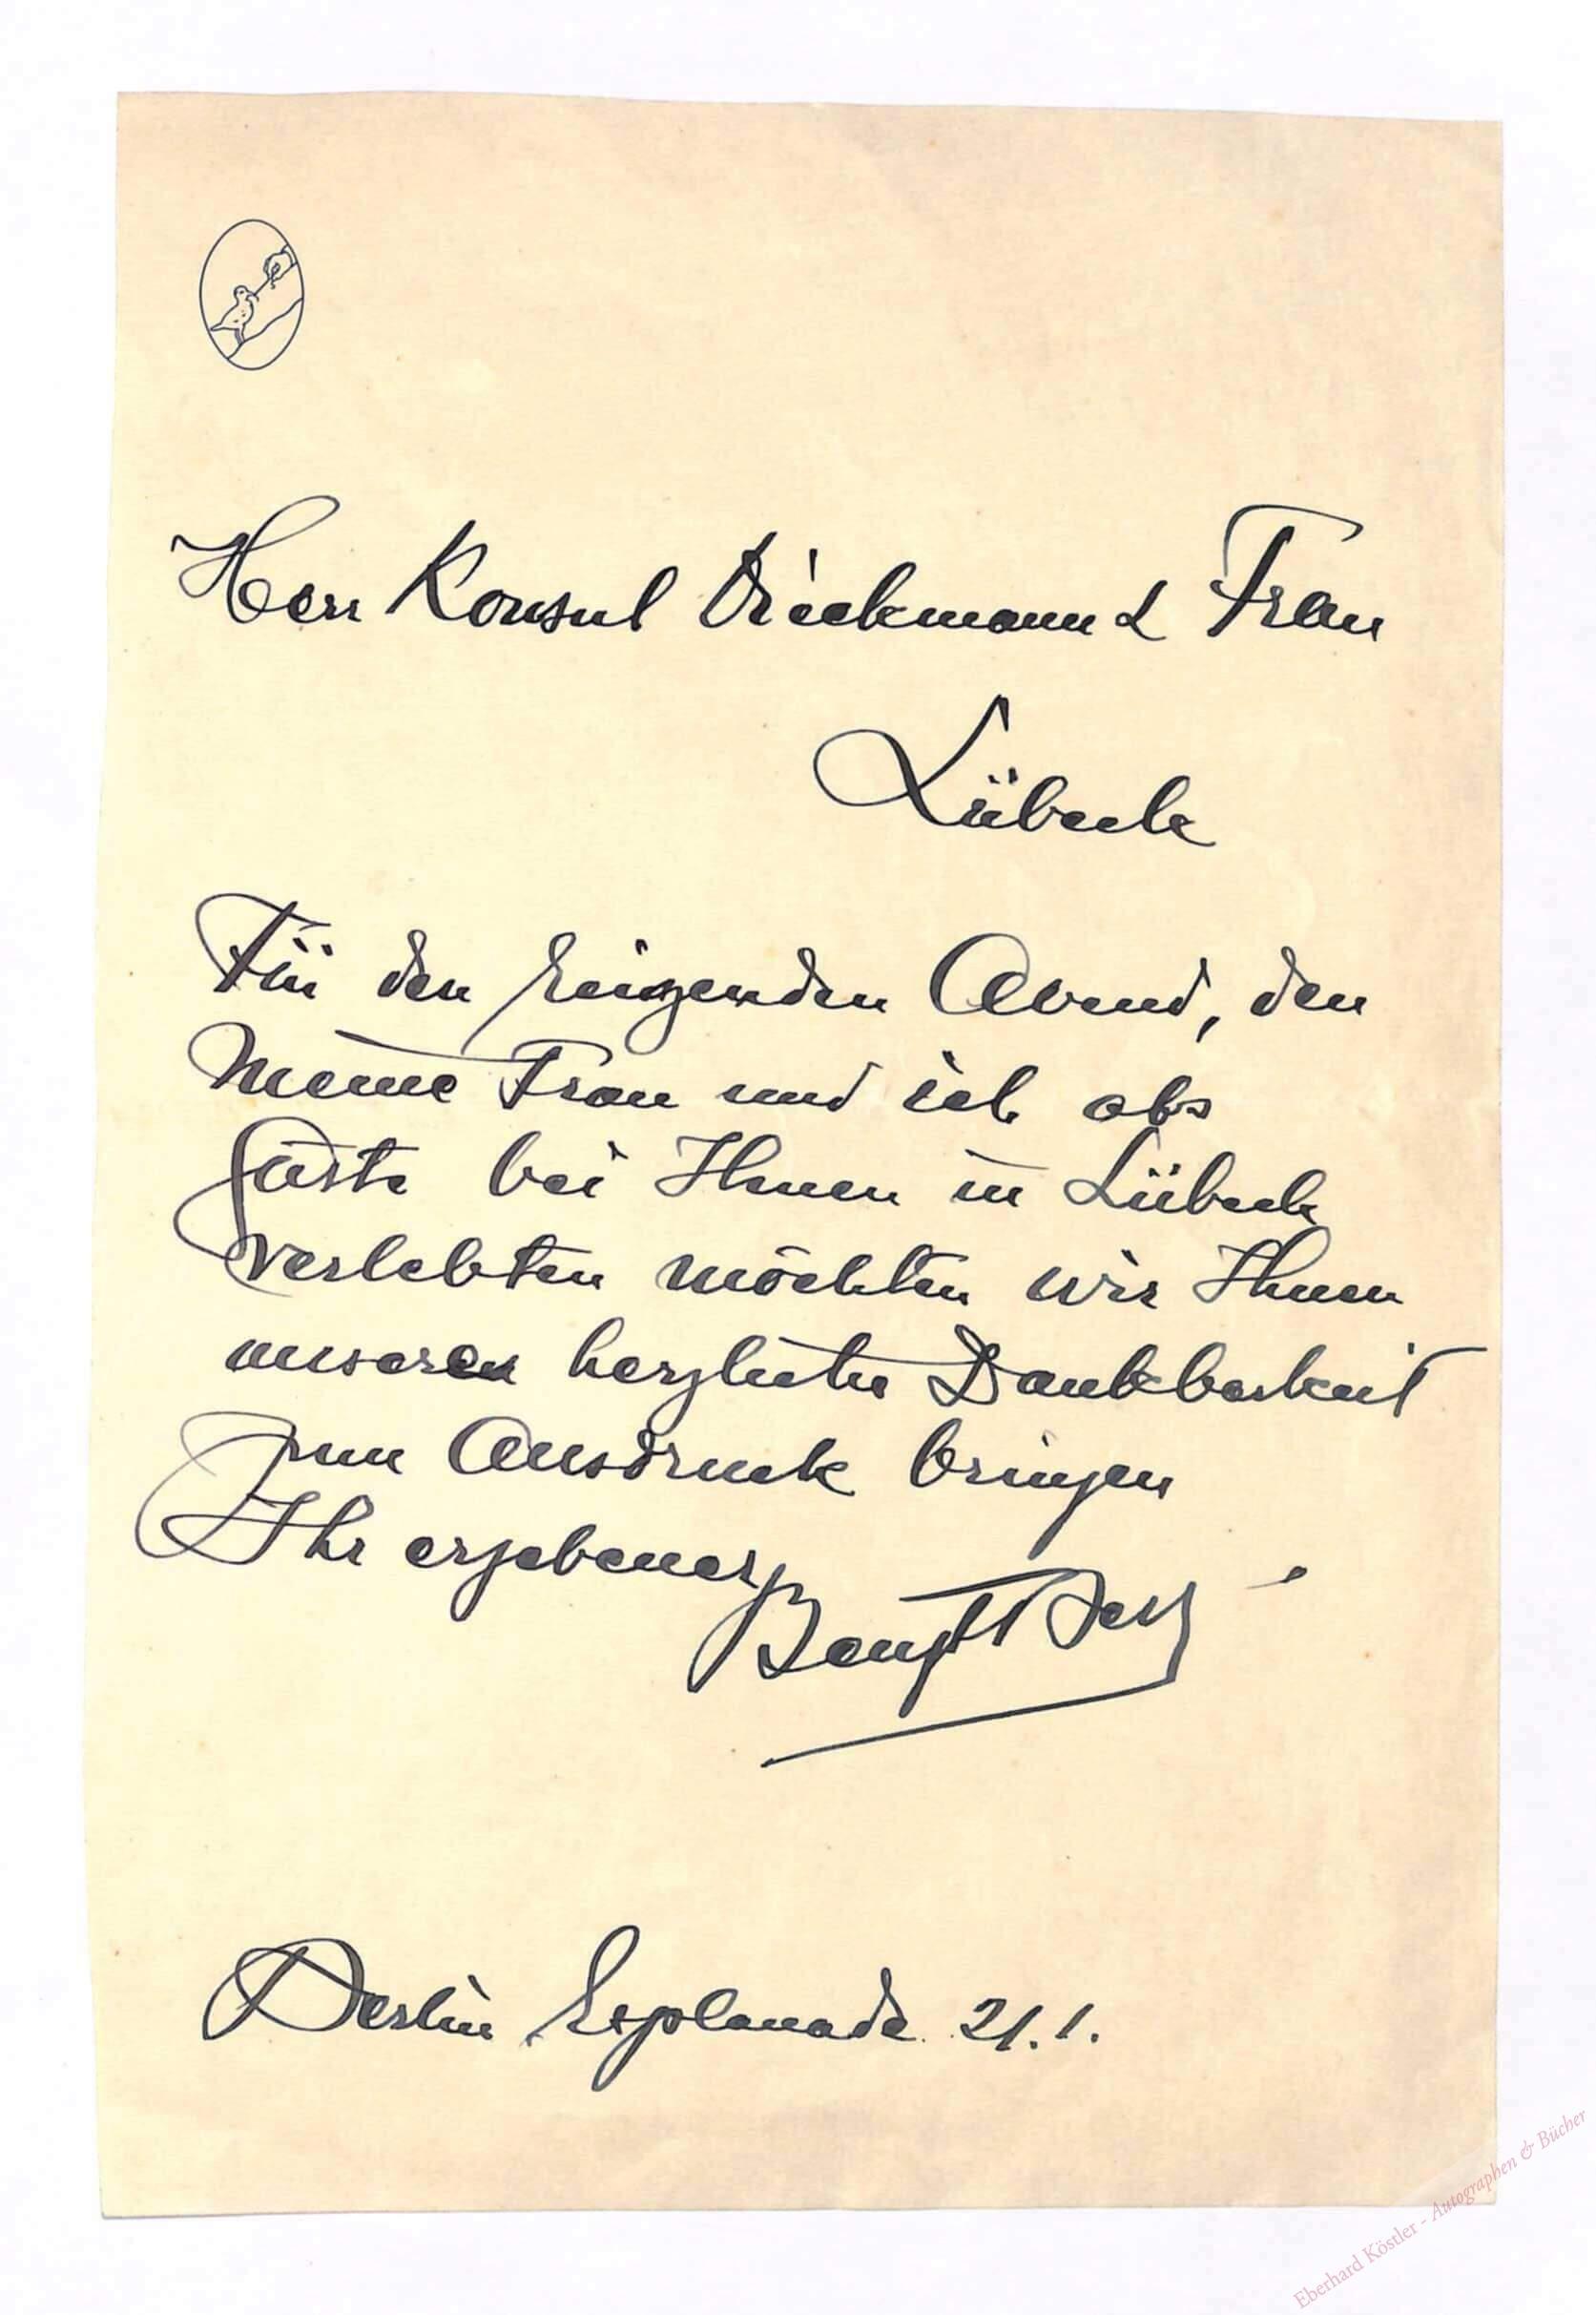 Herr Konsul Dieckmann & Frau
Lübeck
Für den reizenden Abend, den
meine Frau und ich als
Gäste bei Ihnen in Lübeck
verlebten möchten wir Ihnen
unseren herzliche Dankbarkeit
zum Ausdruck bringen
Ihr ergebener
Bengt Berg
Berlin Esplanade 21.1.
Eberhard Köstler - Autographen & Bücher